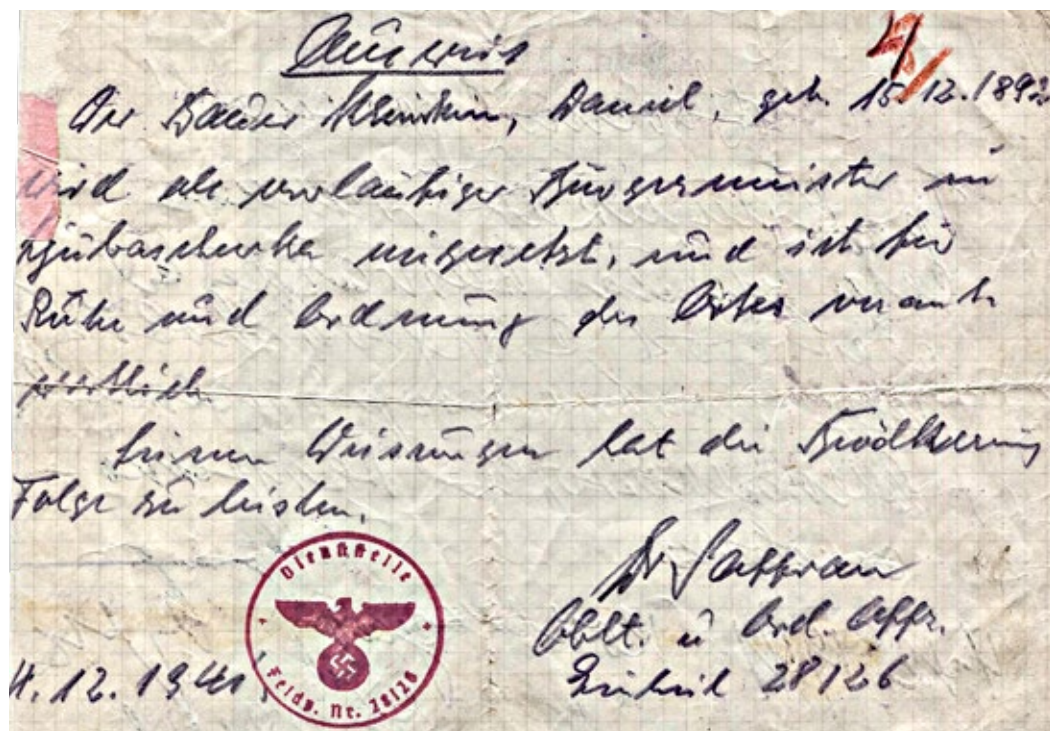 Ausweis
4/
Der Bauer, Daniel, geb. 15.12.1892
wird als vorläufiger Bürgermeister in
eingesetzt, und ist für
Ruhe und Ordnung des Ortes verant
wortlich.
Seinen Weisungen hat die Bevölkerung
Folge zu leisten.
Dr
Oblt. u Ord. Offz.
Einheit 28126
4.12.1941
Dienststelle
Feldp. Nr. 28126